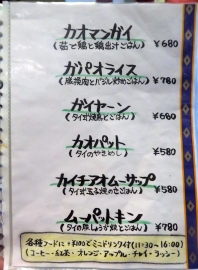 カオマンガイ
(茹で鶏と鶏出汁ごはん) ¥680
ガパオライス
(豚挽肉とバジル炒めごはん) ¥780
ガイヤーン
(タイ式焼鳥とごはん) ¥680
カオパット
(タイのやきめし) ¥580
カイチアオムーサップ
(タイ式玉子焼のせごはん) ¥580
ムーパットキン
(タイの豚しょうが炒とごはん) ¥780
各種フードに+¥100でミニドリンク付(11:30~16:00)
(コーヒー・紅茶・オレンジ・アップル・チャイ・ラッシー)